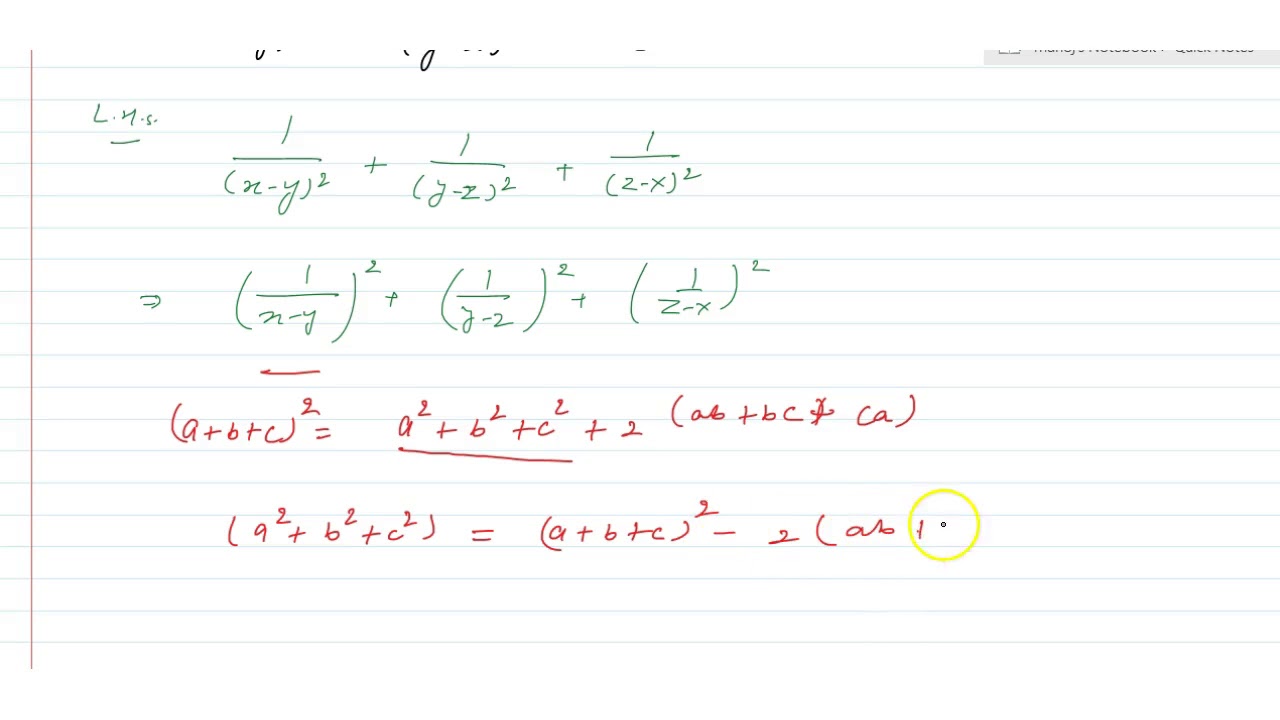 Manoj's Notebook > Quick Notes
L.H.S.
1/(x-y)² + 1/(y-z)² + 1/(z-x)²
⇒ (1/(x-y))² + (1/(y-z))² + (1/(z-x))²
(a+b+c)² = a² + b² + c² + 2 (ab + bc + ca)
(a² + b² + c²) = (a + b + c)² - 2 (ab +